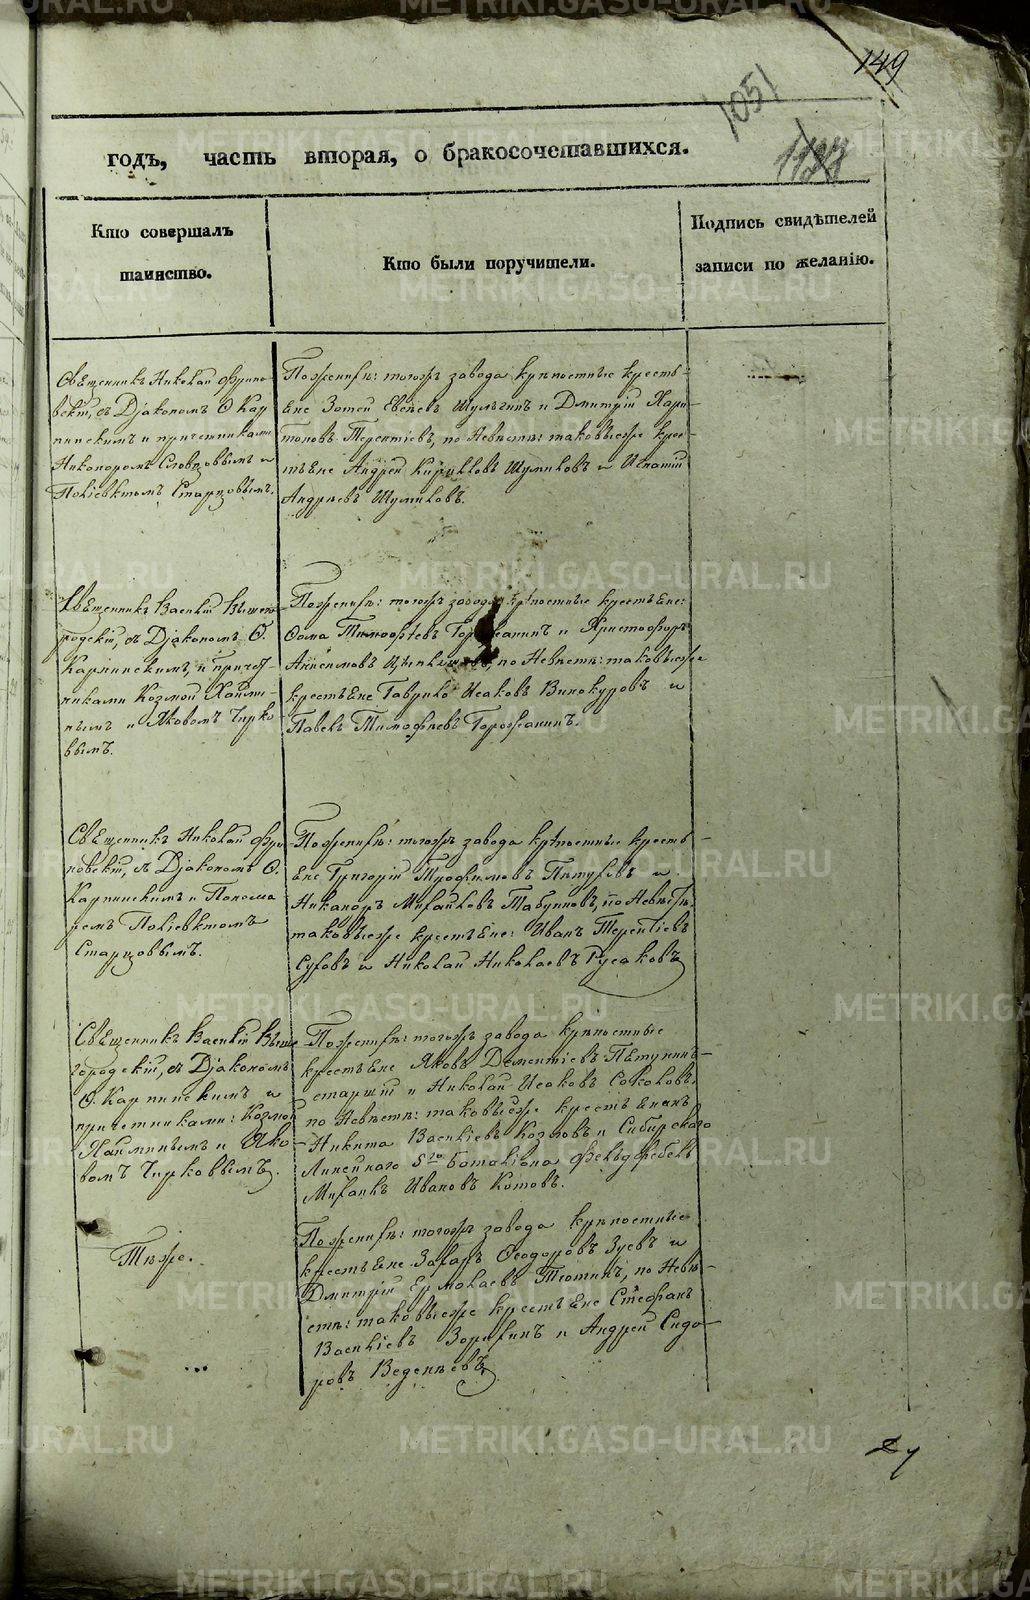 149
1051
годъ, часть вторая, о бракосочетавшихся.
Кто совершалъ
таинство.
Кто были поручители.
Подпись свидѣтелей
записи по желанію.
Священникъ Николай
съ Діакономъ О. Кар-
пинскимъ и причетниками
Никоноромъ Словцовымъ и
Поліевктомъ Старцовымъ.
По женихѣ: тогожъ завода крѣпостные кресть-
яне Зотей Евсѣевъ Шулгинъ и Дмитрій Хари-
тоновъ Терентіевъ, по Невѣстѣ: таковыеже крес-
тьяне Андрей Кириловъ Шумиловъ и Игнатій
Андреевъ Шумиловъ.
Священникъ Василій Вышего-
родскій, съ Діакономъ О.
Карпинскимъ, и причет-
никами Козмой Хайми-
нымъ и Яковомъ Чирко-
вымъ.
По женихѣ: тогожъ завода крѣпостные крестьяне:
Фома Тимофѣевъ и Христофоръ
Анисимовъ по Невѣстѣ: таковыеже
крестьяне Гаврило Исаковъ Винокуровъ и
Павелъ Тимофѣевъ Горожанинъ.
Священникъ Николай
съ Діакономъ О.
Карпинскимъ и Понома
ремъ Поліевктомъ
Старцовымъ.
По женихѣ: тогожъ завода крѣпостные кресть-
яне Григорій Трофимовъ Пятуховъ и
Никаноръ Михайловъ Табунновъ, по Невѣстѣ
таковыеже крестьяне: Иванъ Терентіевъ
Суховъ и Николай Николаевъ Русаковъ
Священникъ Василій Выше
городскій, съ Діакономъ
О. Карпинскимъ и
причетниками: Козмой
Хайминымъ и Яко-
вомъ Чирковымъ.
По женихѣ: тогожъ завода крѣпостные
крестьяне Яковъ Дементіевъ Пѣтунинъ
старшій и Николай Исаковъ Соколовъ,
по Невѣстѣ: таковыеже крестьянинъ
Никита Василіевъ Козловъ и Сибирскаго
Линейнаго 5го Баталіона Фельдфебель
Михаилъ Ивановъ Котовъ.
Тѣже.
По женихѣ: тогожъ завода крѣпостные
крестьяне Захаръ Феодоровъ Зуевъ и
Дмитрій Ермолаевъ Тетинъ, по Невѣ-
стѣ: таковыеже крестьяне Стефанъ
Василіевъ Зорихинъ и Андрей Сидо-
ровъ Веденѣевъ
METRIKI.GASO-URAL.RU